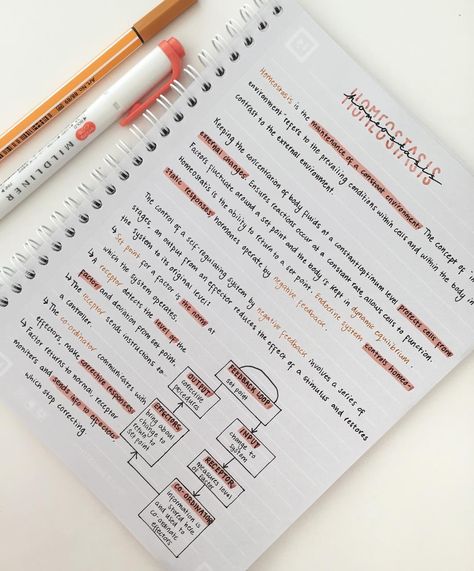 HOMEOSTASIS
homeostasis
Homeostasis is the maintenance of a constant environment. The concept of
environment' refers to the prevailing conditions within cells and within the body
contrast to the external environment.
Keeping the concentration of body fluids at a constant/optimum level protects cells from
external changes, ensures reactions occur at a constant rate, allows cells to function.
Factors fluctuate around a set point and the body is kept in dynamic equilibrium.
Homeostatis is the ability to return to a set point. Endocrine system controls homeo-
static responses, hormones operate by negative feedback.
The control of a self-regulating system by negative feedback involves a series of
stages: an output from an effector reduces the effect of a stimulus and restores
the system to its original level.
↳ Set point for a factor is the norm at
which the system operates.
↳ A receptor detects the level of the
factor and deviation from set point.
↳ The receptor sends instructions to
a controller.
↳ The co-ordinator communicates with
effectors, make corrective responses.
↳ Factor returns to normal, receptor
monitors and sends info to effectors
which stop correcting.
FEEDBACK LOOP
set point
INPUT
change to
system
RECEPTOR
measures level
of factor
CO-ORDINATOR
information is
stored here
and used to
co-ordinate
effectors
EFFECTORS
bring about
change to
return to
set point
OUTPUT
corrective
procedures
MILDLINER